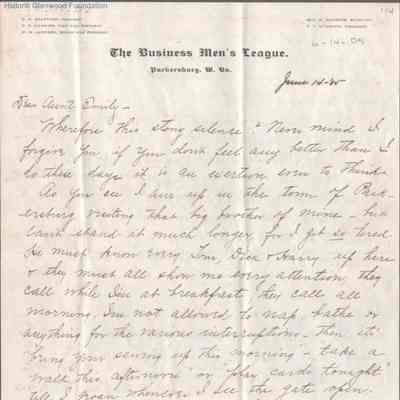 Historic Glenwood Foundation
The Business Men's League.
Parkersburg, W. Va.
6-14-05
June 14-05
Dear Aunt Emily-
Wherefore this stony silence? Never mind I
forgive you, if you don't feel any better than I
do these days it is an exertion even to think-
As you see I am up in the town of Park-
ersburg visiting that big brother of mine - but
can't stand it much longer for I get so tired
He must know every Tom, Dick & Harry up here
& they must all show me every attention they
call while I'm at breakfast they call all
morning. I'm not allowed to nap, bathe or
anything for the various interruptions - then it's
"bring your sewing up this morning" - "take a
walk this afternoon" or "play cards tonight"
till I groan whenever I see the gate open.